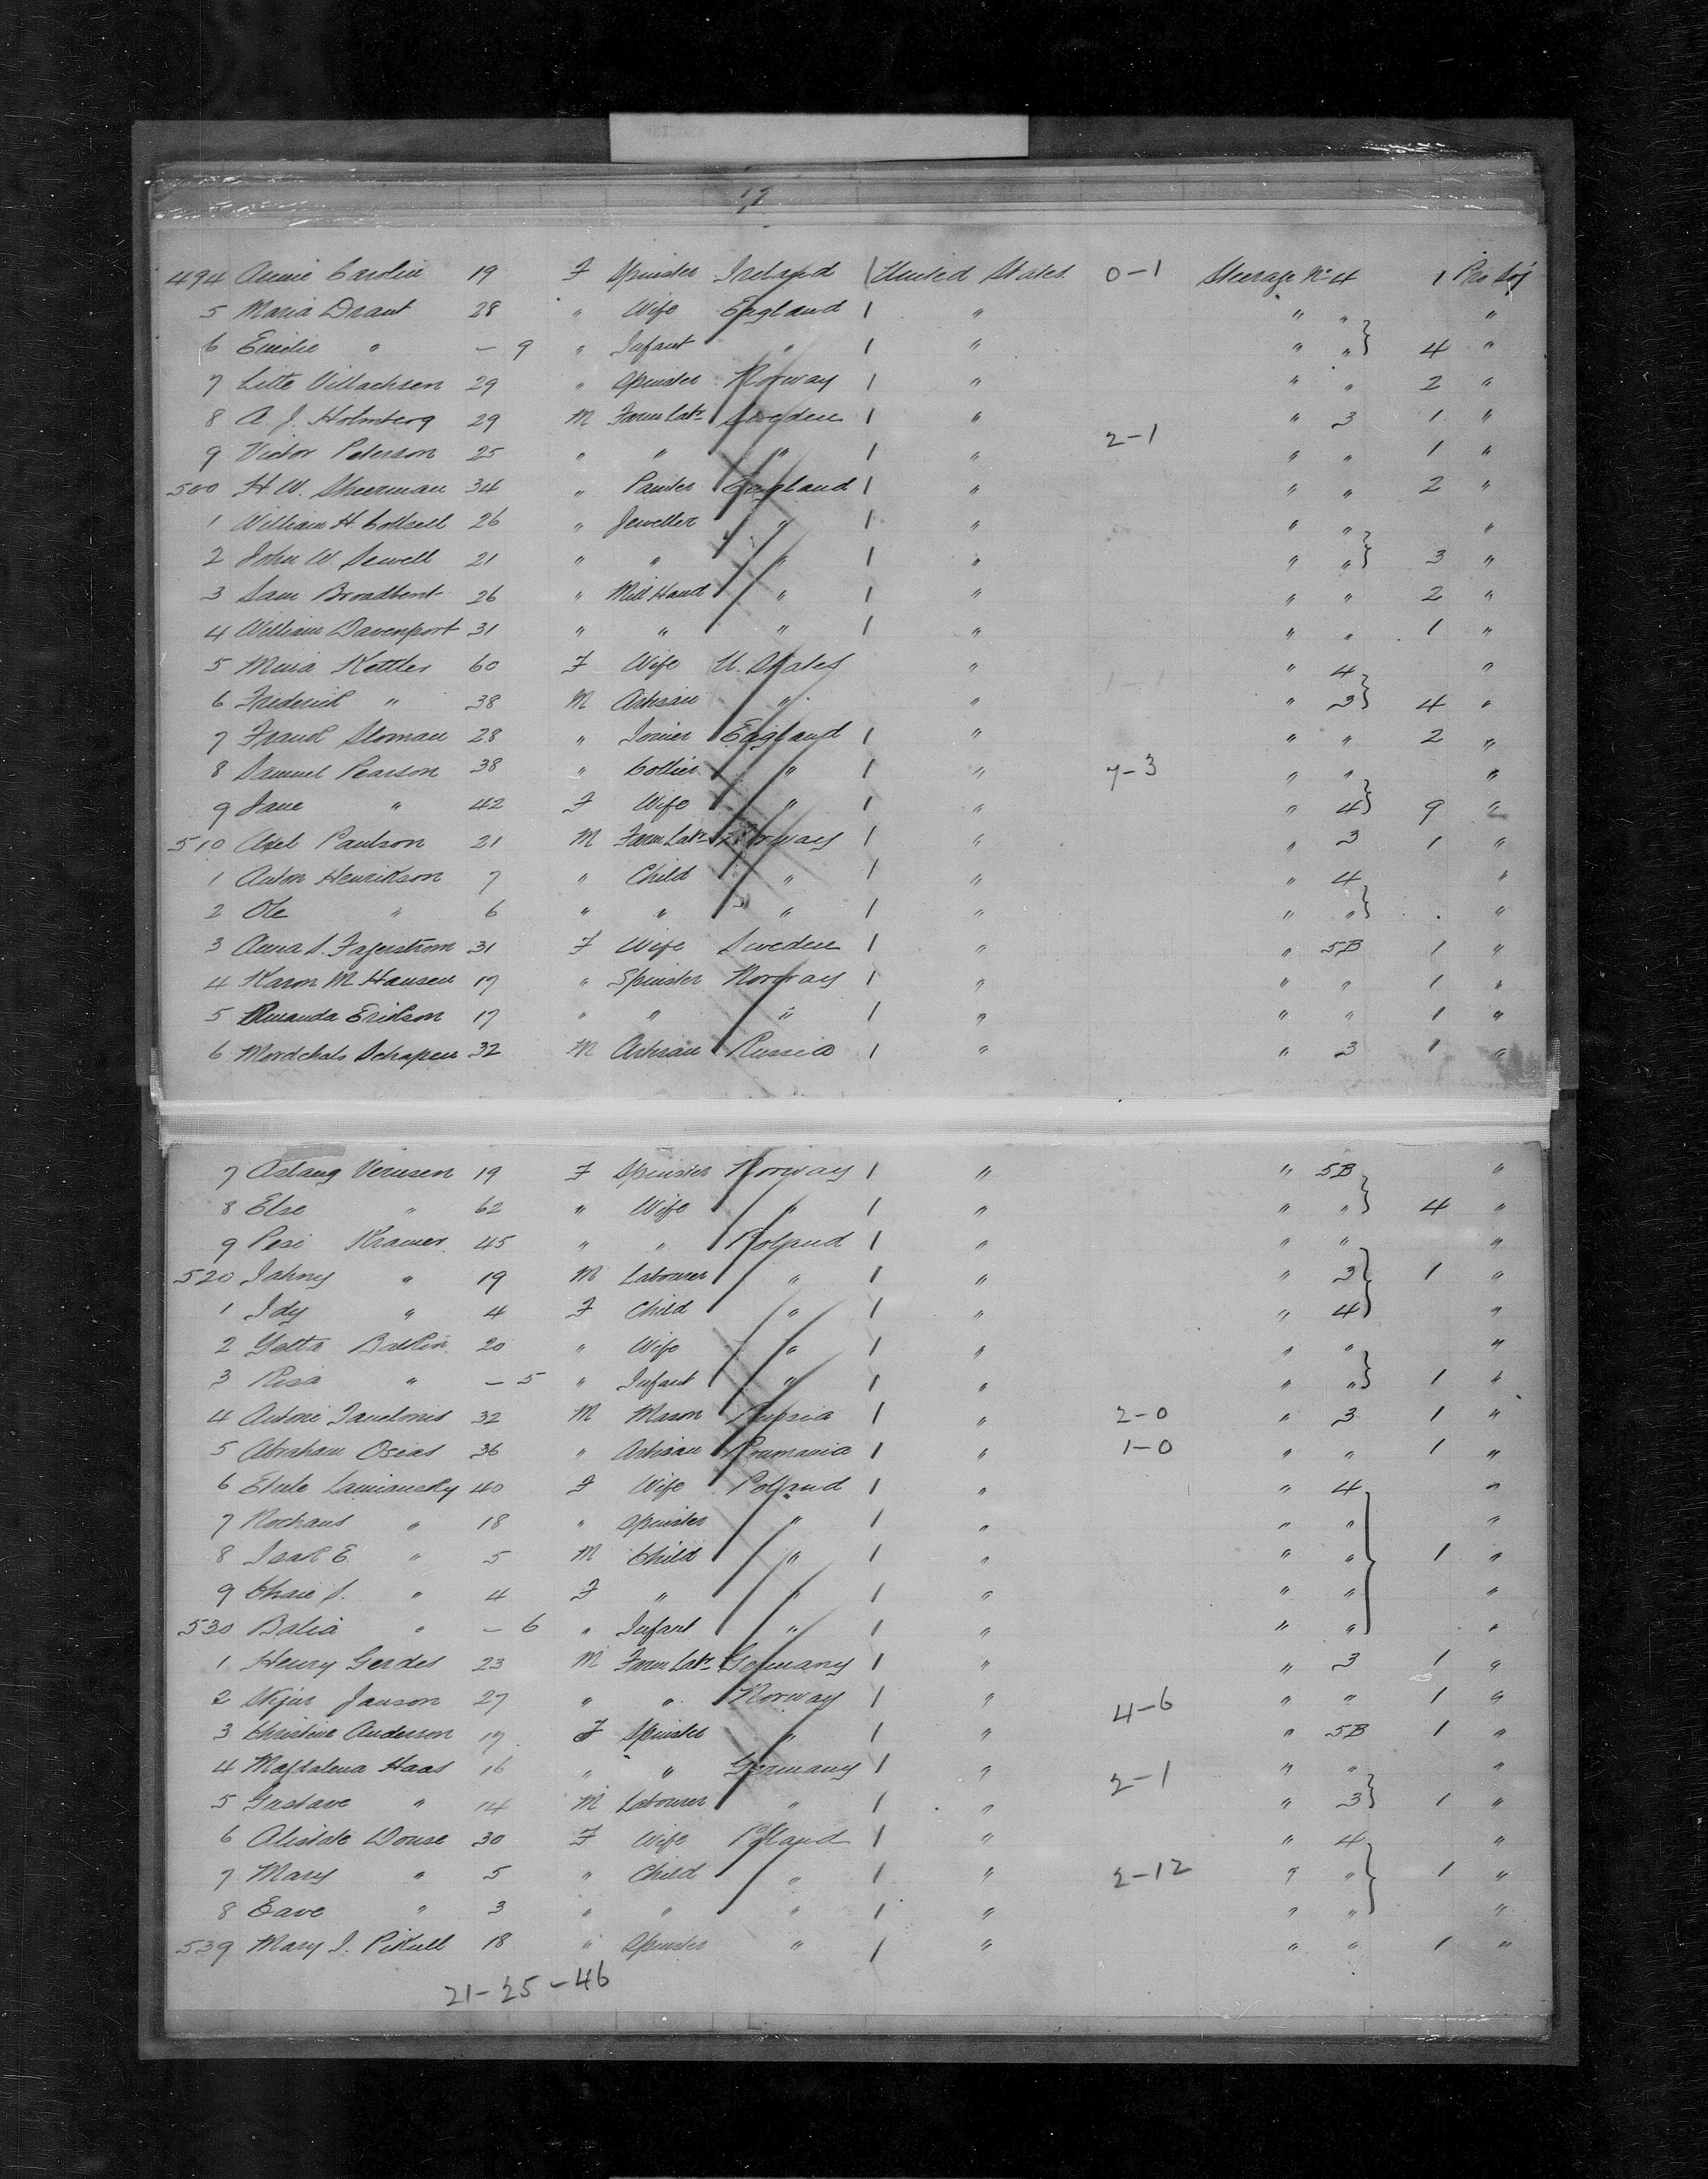 494 Annie Carolin 19 F Spinster Ireland 1 United States 0-1 Steerage No 4 1 Pro Soj
5 Maria Draut 28 " Wife England 1 " " " "
6 Emilie " - 9 " Infant " 1 " " " 4 "
7 29 " Spinster Norway 1 " " " 2 "
8 A. J. Holmberg 29 M Farm Labr Sweden 1 " " 3 1 "
9 Victor Peterson 25 " " " 1 " 2-1 " " 1 "
500 H. W. Sheerman 34 " Painter England 1 " " " 2 "
1 William H. Cottrell 26 " Jeweller " 1 " " " "
2 John W. Sewell 21 " " " 1 " " " 3 "
3 Sam Broadbent 26 " Mill Hand " 1 " " " 2 "
4 William Davenport 31 " " " 1 " " " 1 "
5 Maria Kottler 60 F Wife U. States " " 4 "
6 Frederick " 38 M Artisan " " " 3 4 "
7 Frank Sloman 28 " Joiner England 1 " " " 2 "
8 Samuel Pearson 38 " Collier " 1 " 7-3 " " "
9 Jane " 42 F Wife " 1 " " 4 9 "
510 Axel Paulson 21 M Farm Labr Norway 1 " " 3 1 "
1 Anton Henrikson 7 " Child " 1 " " 4 "
2 Ole " 6 " " " 1 " " " "
3 Anna S. Fagerstrom 31 F Wife Sweden 1 " " 5B 1 "
4 Karon M. Hansen 17 " Spinster Norway 1 " " " 1 "
5 Amanda Erikson 17 " " " 1 " " " 1 "
6 Mordchals Schapen 32 M Artisan Russia 1 " " 3 1 "
7 Aslaug 19 F Spinster Norway 1 " " 5B "
8 Else " 62 " Wife " 1 " " " 4 "
9 Pesi Kramer 45 " " Poland 1 " " " "
520 " 19 M Labourer " 1 " " 3 1 "
1 Idy " 4 F Child " 1 " " 4 "
2 Yetta Balkin 20 " Wife " 1 " " " "
3 Risa " - 5 " Infant " 1 " " " 1 "
4 Antoni 32 M Mason Russia 1 " 2-0 " 3 1 "
5 Abraham Osias 36 " Artisan Roumania 1 " 1-0 " " 1 "
6 Lamiansky 40 F Wife Poland 1 " " 4 "
7 " 18 " Spinster " 1 " " " "
8 Isak E. " 5 M Child " 1 " " " 1 "
9 Chaie S. " 4 F " " 1 " " " "
530 Balia " - 6 " Infant " 1 " " " "
1 Henry Gerdes 23 M Farm Labr Germany 1 " " 3 1 "
2 Janson 27 " " Norway 1 " 4-6 " " 1 "
3 Christine Anderson 17 F Spinster " 1 " " 5B 1 "
4 Magdalena Haas 16 " " Germany 1 " 2-1 " " "
5 Gustave " 14 M Labourer " 1 " " 3 1 "
6 Douse 30 F Wife Poland 1 " " 4 "
7 Mary " 5 " Child " 1 " 2-12 " " 1 "
8 Eave " 3 " " " 1 " " " "
539 Mary I. Pikull 18 " Spinster " 1 " " " 1 "
21-25-46